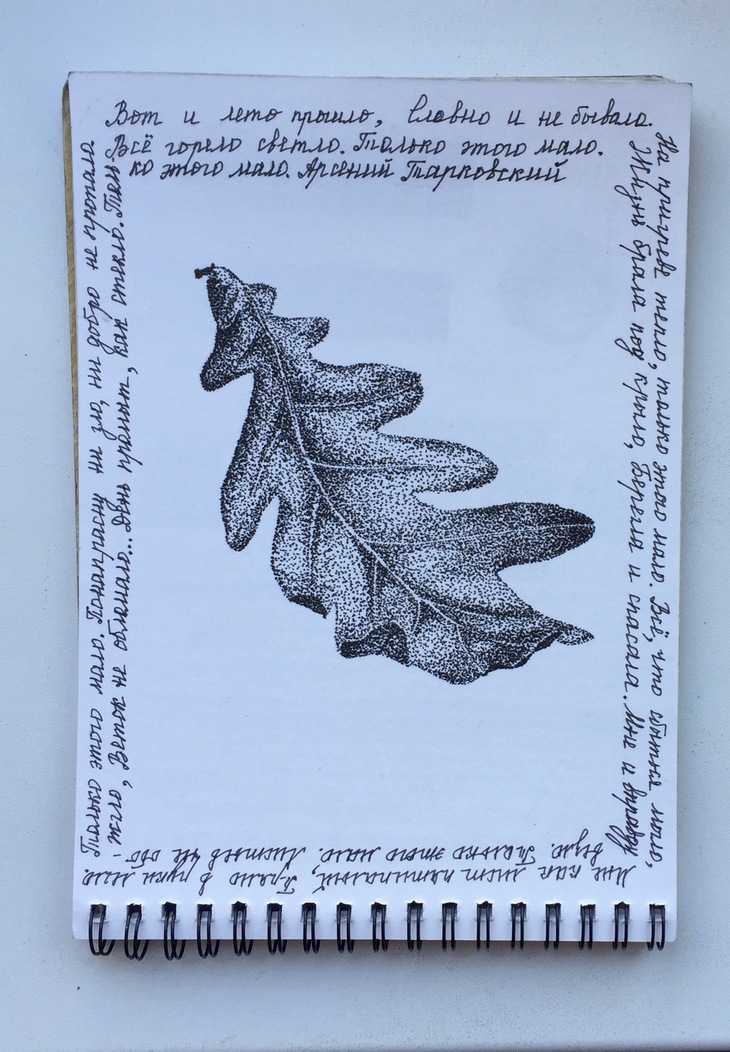 Вот и лето прошло, Словно и не бывало.
На пригреве тепло, только этого мало. Всё, что сбыться могло,
Мне как лист пятипалый, Прямо в руки легло
Только этого мало. Понапрасну ни зло, ни добро не пропало
Всё горело светло. Только этого мало.
Жизнь брала под крыло, Берегла и спасала. Мне и вправду
везло. Только этого мало. Листьев не обо-
жгло, Веток не обломало... День промыт, как стекло. Толь
ко этого мало. Арсений Тарковский